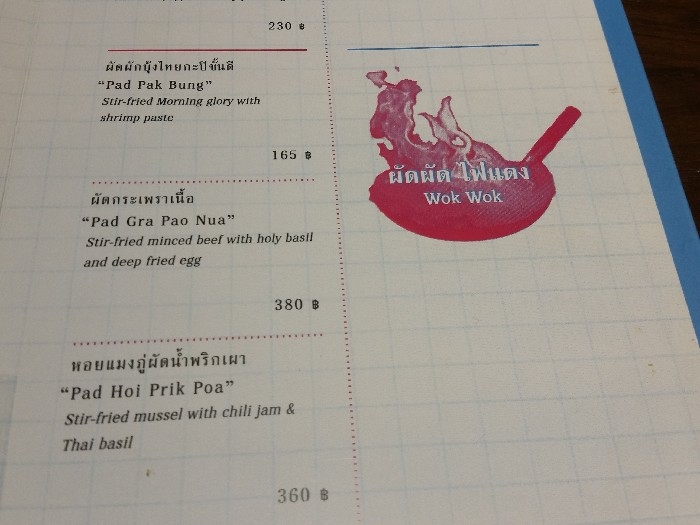 230 ฿
ผัดผักบุ้งไทยกะปิชั้นดี
“Pad Pak Bung”
Stir-fried Morning glory with
shrimp paste
165 ฿
ผัดกระเพราเนื้อ
“Pad Gra Pao Nua”
Stir-fried minced beef with holy basil
and deep fried egg
380 ฿
หอยแมงภู่ผัดน้ำพริกเผา
“Pad Hoi Prik Poa”
Stir-fried mussel with chili jam &
Thai basil
360 ฿
ผัดผัด ไฟแดง
Wok Wok